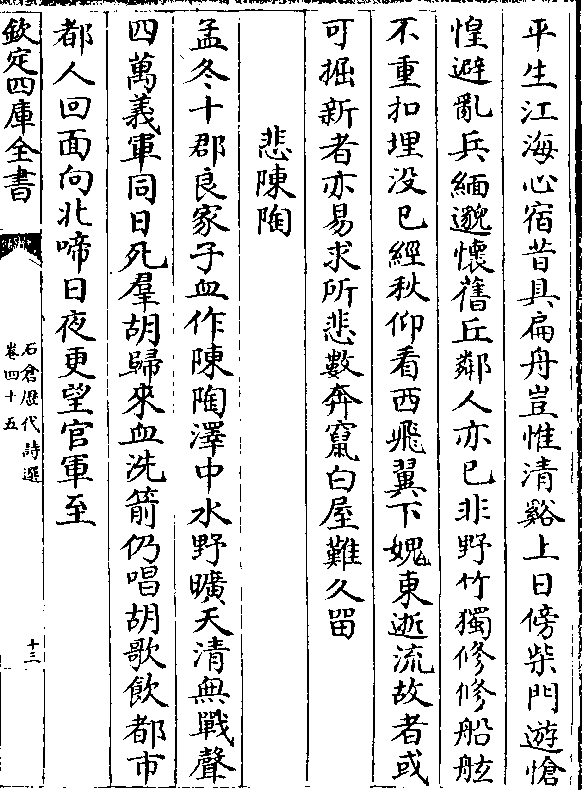 平生江海心宿昔具扁舟豈惟清谿上日傍柴門遊愴
惶避亂兵緬邈懷舊丘鄰人亦已非野竹獨修修船舷
不重扣埋没已經秋仰看西飛翼下媿東逝流故者或
可掘新者亦易求所悲數奔竄白屋難久留
悲陳陶
孟冬十郡良家子血作陳陶澤中水野曠天清無戰聲
四萬義軍同日死羣胡歸來血洗箭仍唱胡歌飲都市
都人回面向北啼日夜更望官軍至
欽定四庫全書
石倉歴代詩選
卷四十五
十三